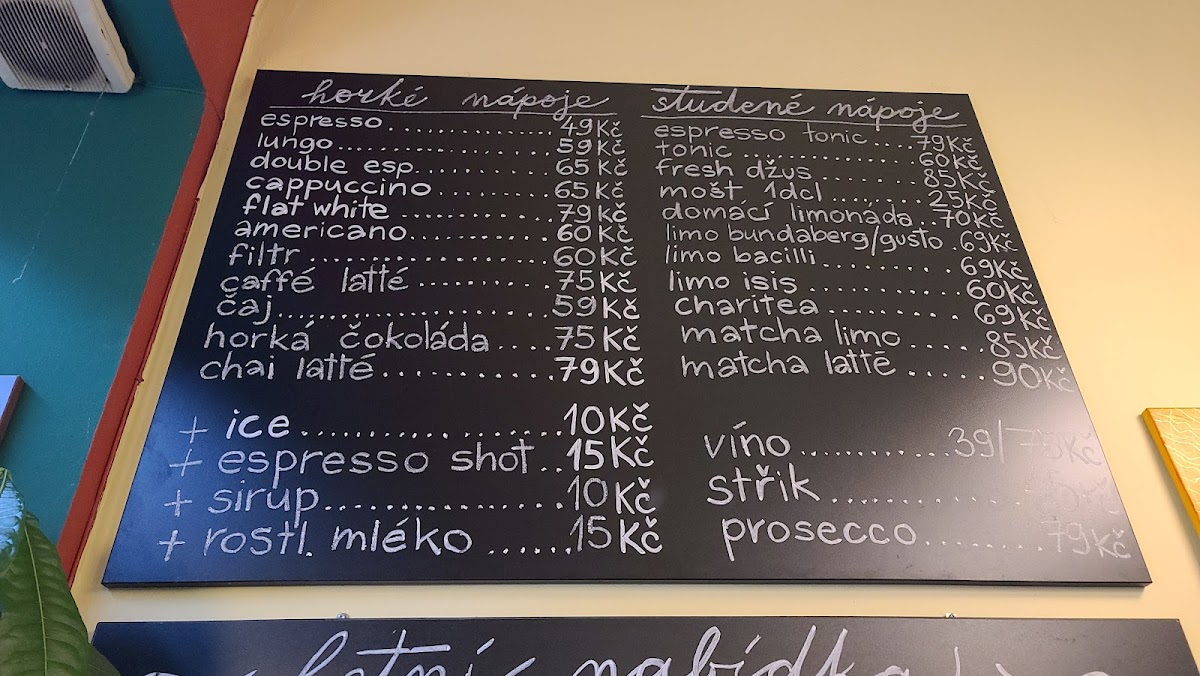 horké nápoje
espresso ................ 49Kč
lungo ................... 59Kč
double esp. ............. 65Kč
cappuccino .............. 65Kč
flat white .............. 79Kč
americano ............... 60Kč
filtr ................... 60Kč
caffé latté ............. 75Kč
čaj ..................... 59Kč
horká čokoláda .... 75Kč
chai latté .............. 79Kč
+ ice ................... 10Kč
+ espresso shot .. 15Kč
+ sirup ................. 10Kč
+ rostl. mléko ...... 15Kč
studené nápoje
espresso tonic .... 79Kč
tonic ................... 60Kč
fresh džus .............. 85Kč
mošt 1dcl ......... 25Kč
domácí limonáda .. 70Kč
limo bundaberg/gusto . 69Kč
limo bacilli ............ 69Kč
limo isis ............... 60Kč
charitea ................ 69Kč
matcha limo ..... 85Kč
matcha latté ...... 90Kč
víno .......... 39/
střik ..............
prosecco .......... 79Kč
letní nabídka